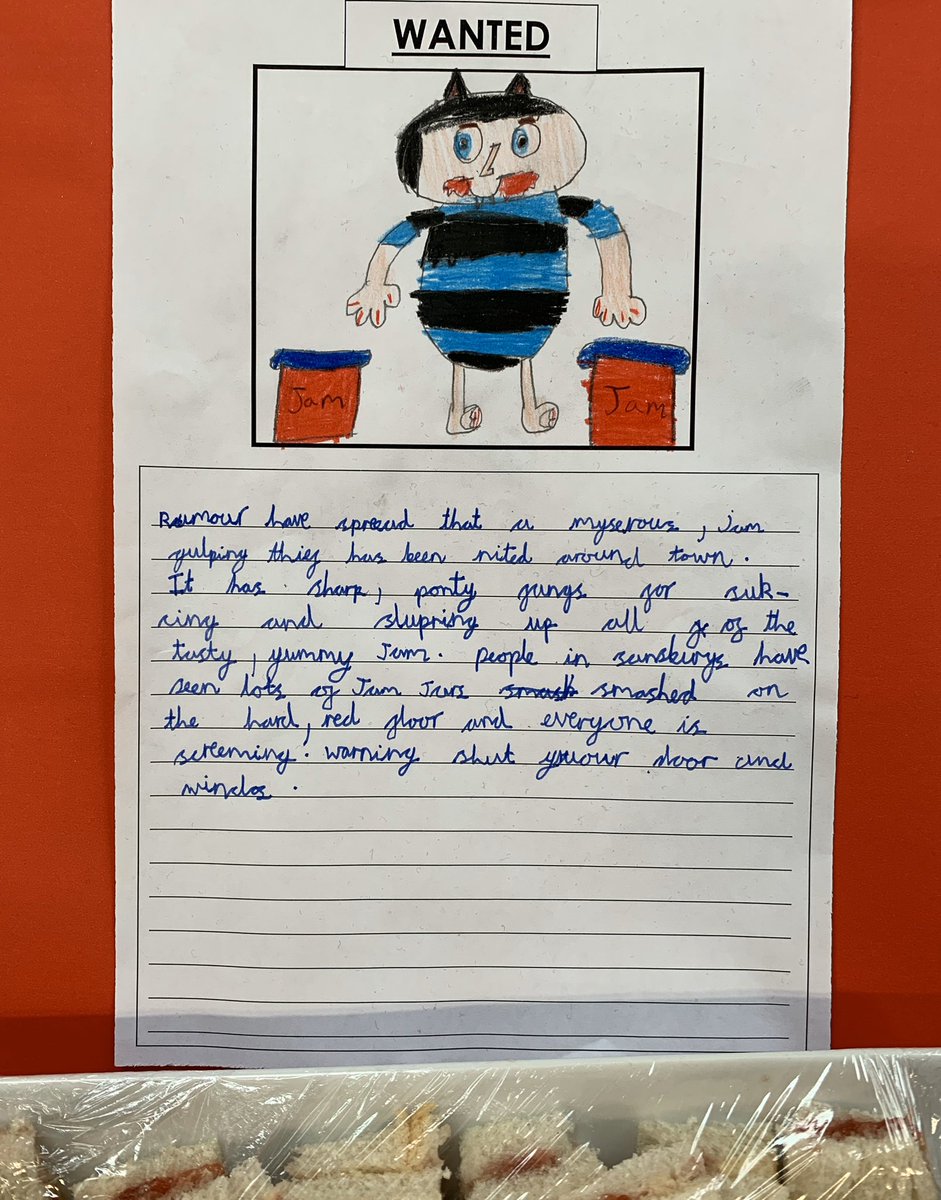 WANTED
Jam
Jam
Rumour have spread that a myserous, jam
gulping thief has been nited around town.
It has sharp, ponty fangs for suk-
ring and slupring up all of the
tasty, yummy Jam. people in sansburys have
seen lots of Jam Jars smash smashed on
the hard, red floor and everyone is
screeming. warning shut yuour door and
windos.